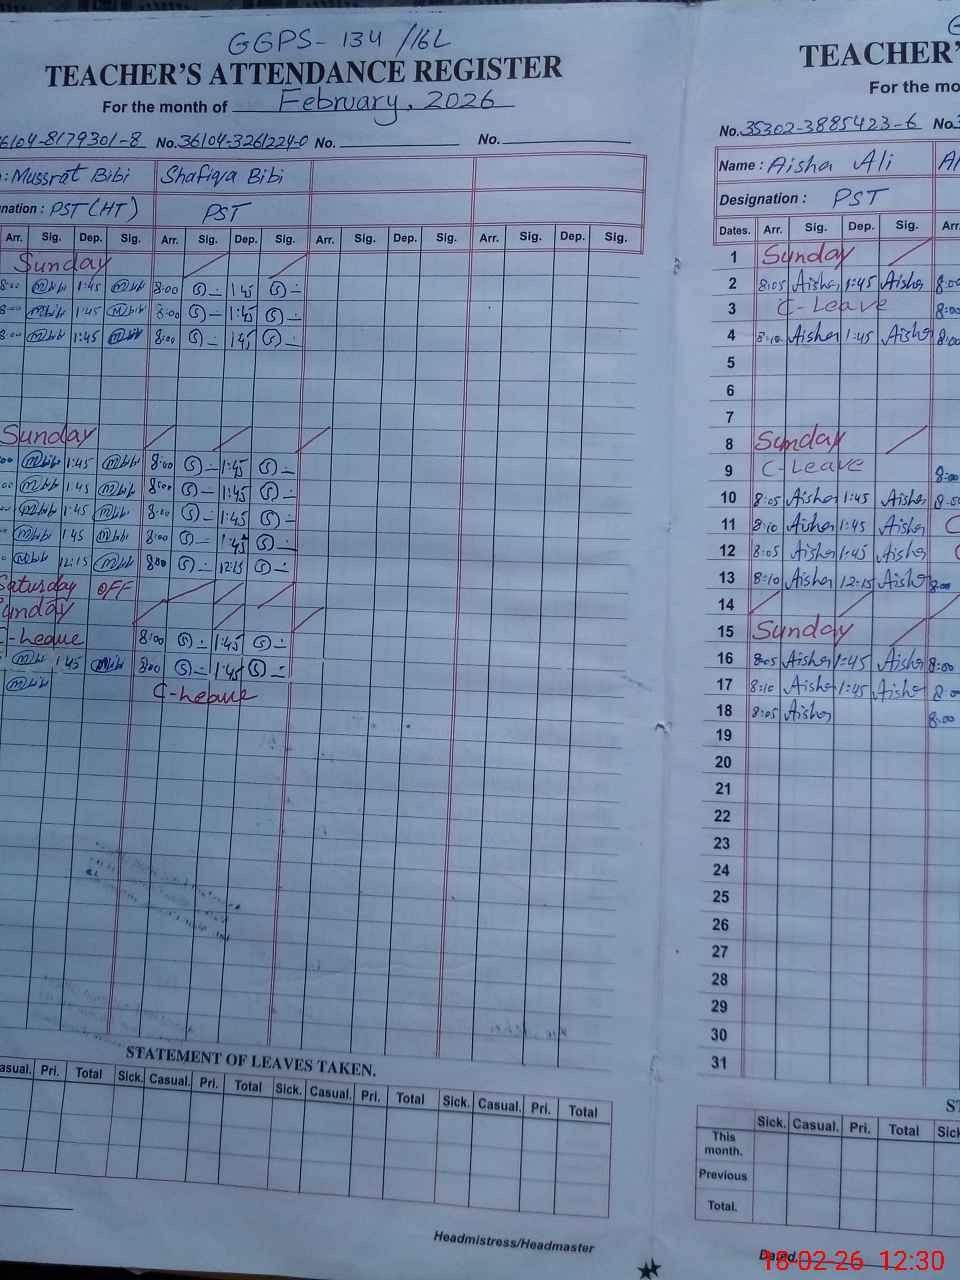 GGPS- 134 /16L
TEACHER'S ATTENDANCE REGISTER
For the month of February, 2026
36104-8179301-8 No. 36104-3261224-0 No. No.
: Mussrat Bibi Shafiqa Bibi
nation : PST (HT) PST
Arr. Sig. Dep. Sig. Arr. Sig. Dep. Sig. Arr. Sig. Dep. Sig. Arr. Sig. Dep. Sig.
Sunday
8:00 Mbibi 1:45 Mbibi 8:00 S 1:45 S
8:00 Mbibi 1:45 Mbibi 8:00 S 1:45 S
8:00 Mbibi 1:45 Mbibi 8:00 S 1:45 S
Sunday
00 Mbibi 1:45 Mbibi 8:00 S 1:45 S
00 Mbibi 1:45 Mbibi 8:00 S 1:45 S
Mbibi 1:45 Mbibi 8:00 S 1:45 S
Mbibi 1:45 Mbibi 8:00 S 1:45 S
Mbibi 12:15 Mbibi 8:00 S 12:15 S
Saturday OFF
Sunday
C-Leave 8:00 S 1:45 S
Mbibi 1:45 Mbibi 8:00 S 1:45 S
Mbibi C-Leave
STATEMENT OF LEAVES TAKEN.
asual. Pri. Total Sick. Casual. Pri. Total Sick. Casual. Pri. Total Sick. Casual. Pri. Total
Headmistress/Headmaster
G
TEACHER'
For the mo
No. 35302-3885423-6 No.
Name : Aisha Ali
Designation : PST
Dates. Arr. Sig. Dep. Sig. Arr.
1 Sunday
2 8:05 Aisha 1:45 Aisha 8:00
3 C-Leave 8:00
4 8:10 Aisha 1:45 Aisha 8:00
5
6
7
8 Sunday
9 C-Leave 8:00
10 8:05 Aisha 1:45 Aisha 8:00
11 8:10 Aisha 1:45 Aisha C
12 8:05 Aisha 1:45 Aisha
13 8:10 Aisha 12:15 Aisha 8:00
14
15 Sunday
16 8:05 Aisha 1:45 Aisha 8:00
17 8:10 Aisha 1:45 Aisha 8:00
18 8:05 Aisha 8:00
19
20
21
22
23
24
25
26
27
28
29
30
31
ST
Sick. Casual. Pri. Total Sick
This month.
Previous
Total.
Dated
18-02-26 12:30